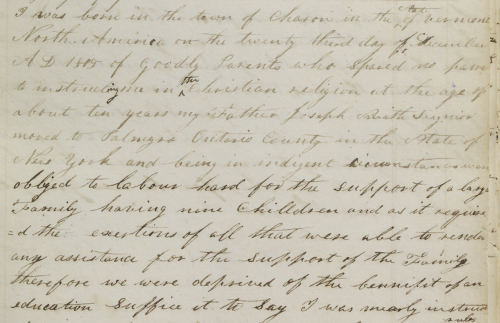 I was born in the town of Charon in the of Vermont
North America on the twenty third day of December
A D 1805 of Goodly Parents who spared no pains
to instructing me in the christian religion at the age of
about ten years my Father Joseph Smith Seignior
moved to Palmyra Ontario County in the State of
New York and being in indigent circumstances were
obliged to labour hard for the support of a large
Family having nine chilldren and as it require
=d the exertions of all that were able to render
any assistance for the support of the Family
therefore we were deprived of the bennifit of an
education Suffice it to Say I was mearly instruct